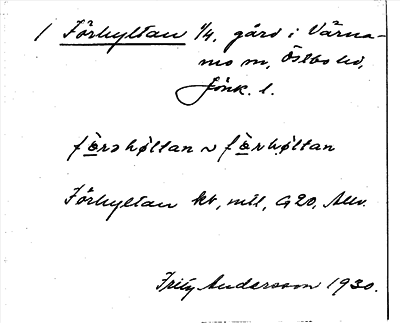 1 Förhyltan 1/4, gård i Värna-
mo sn, Östbo hd,
Jönk. l.
förəhøltan ~ förhøltan
Förhyltan kt, mtl, G20, Allv.
Fritz Andersson 1930.